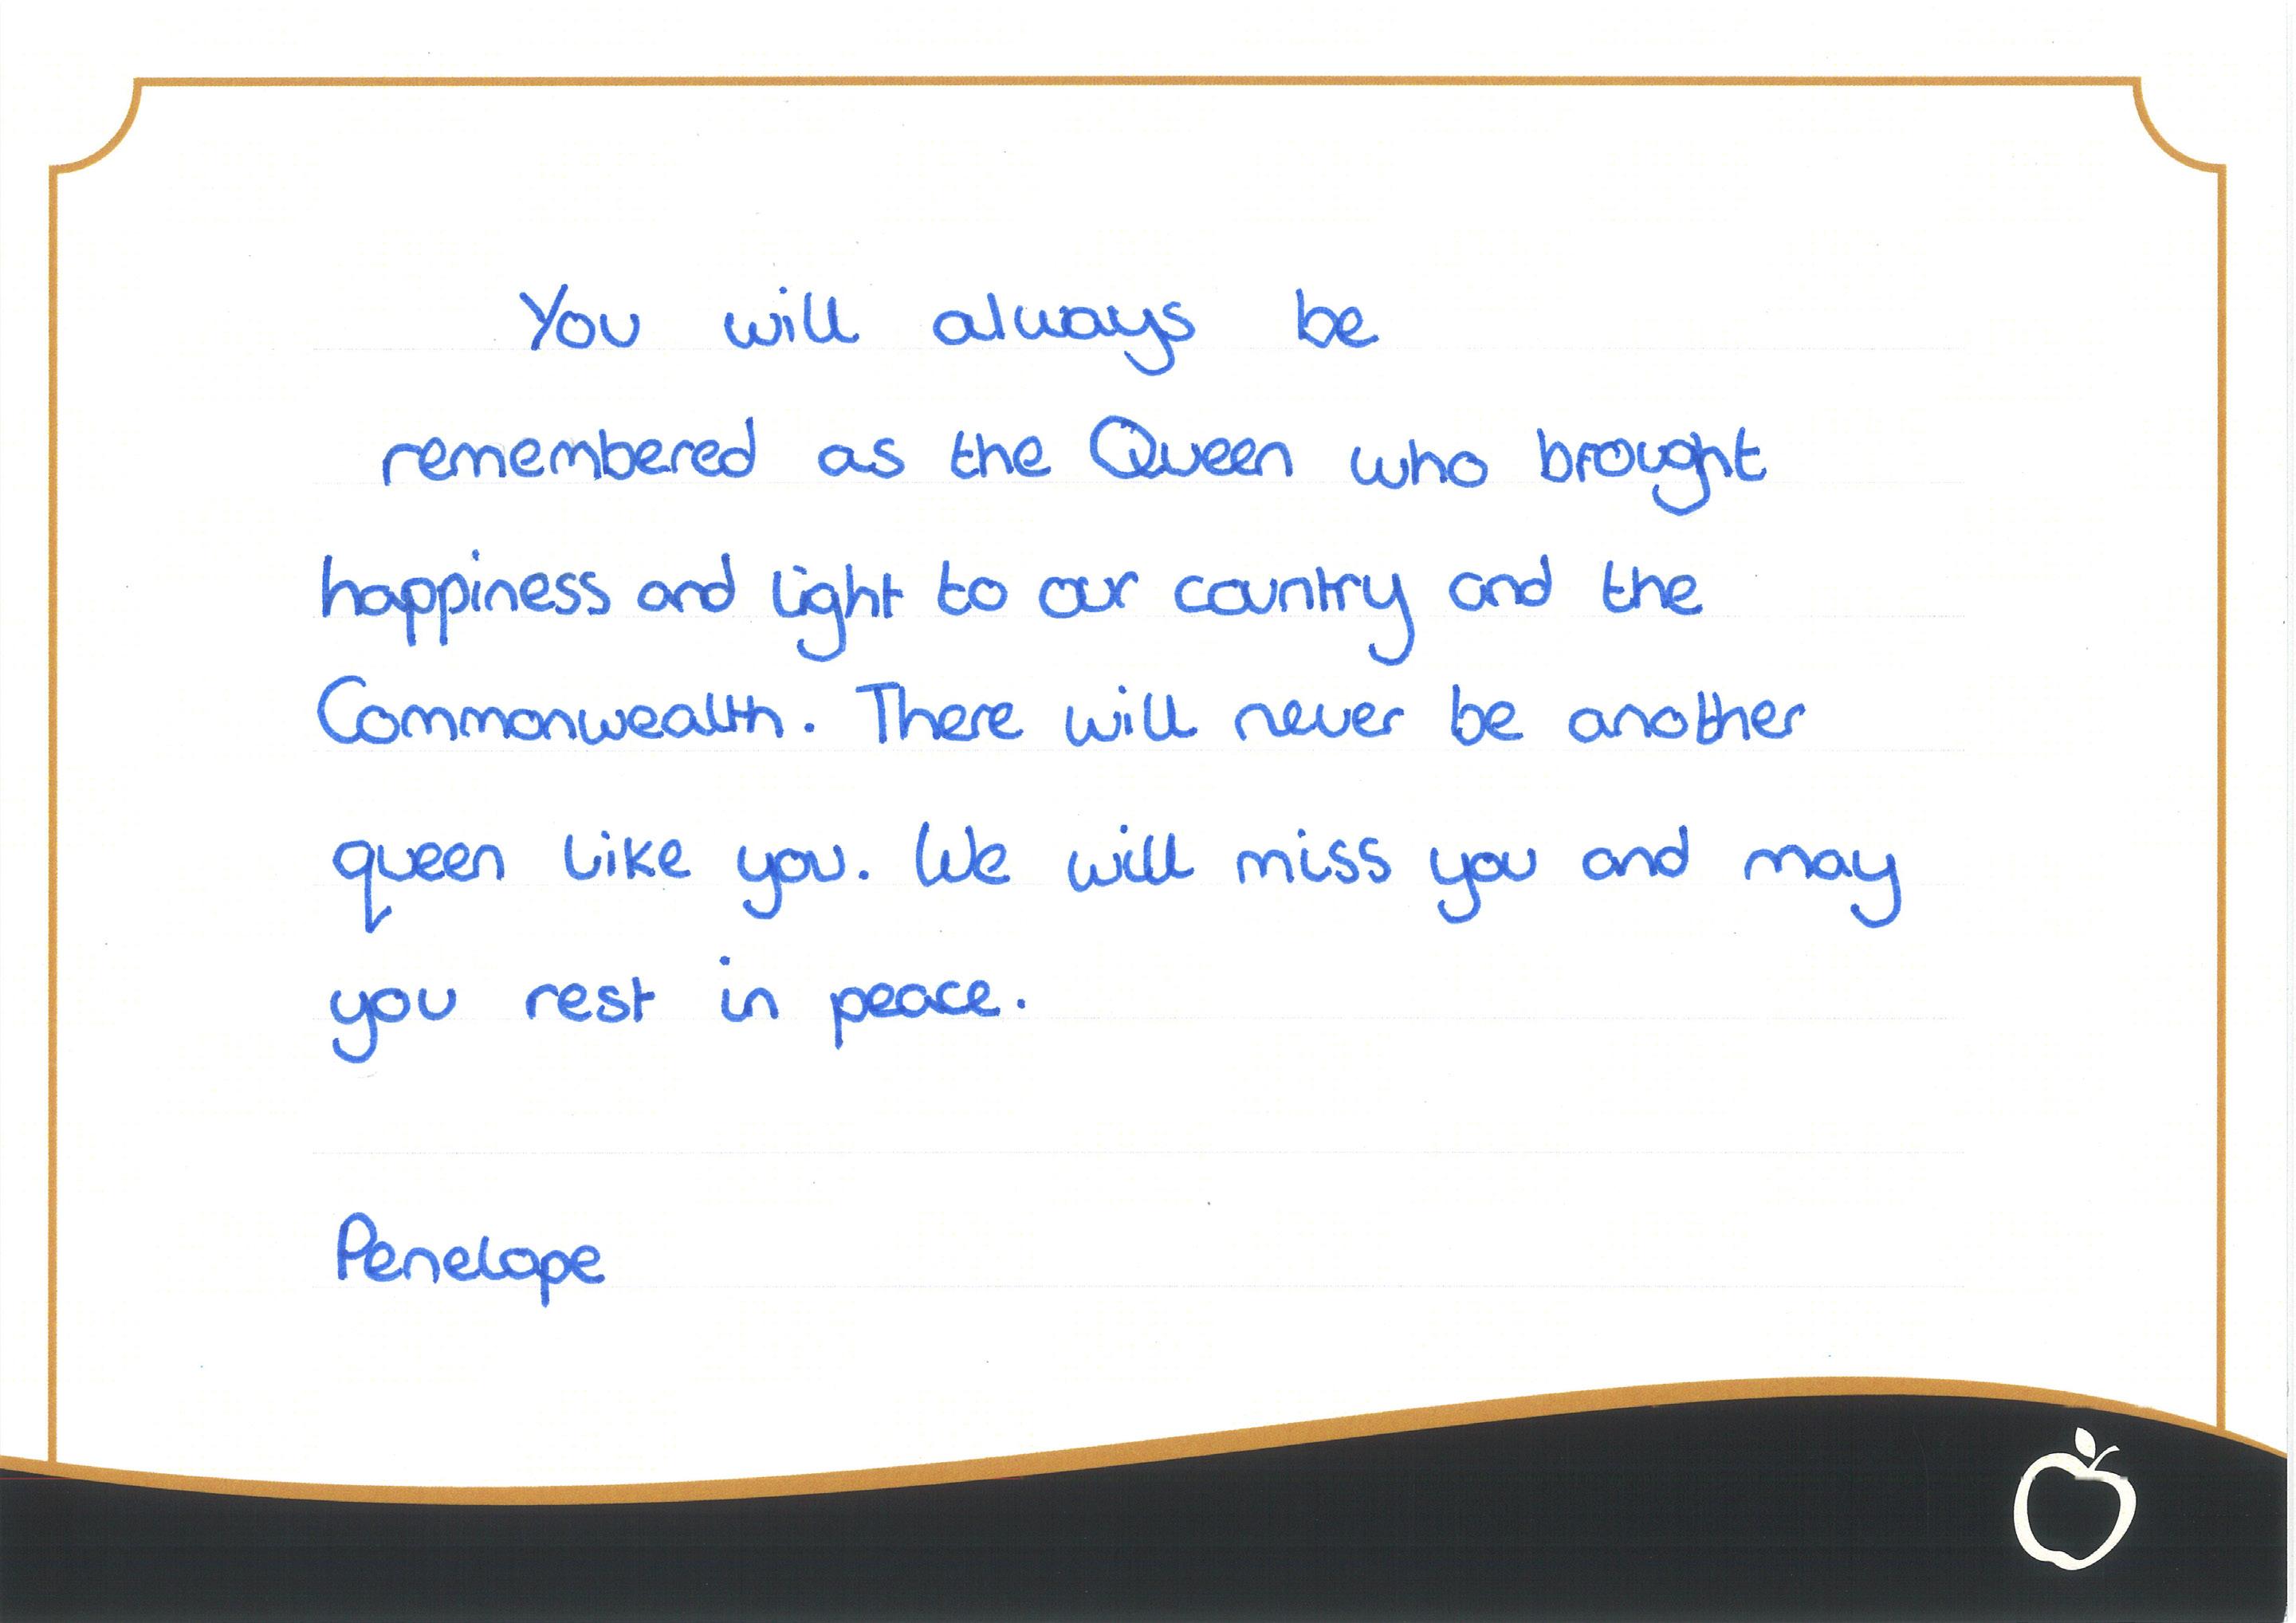 You will always be
remembered as the Queen who brought
happiness and light to our country and the
Commonwealth. There will never be another
queen like you. We will miss you and may
you rest in peace.
Penelope